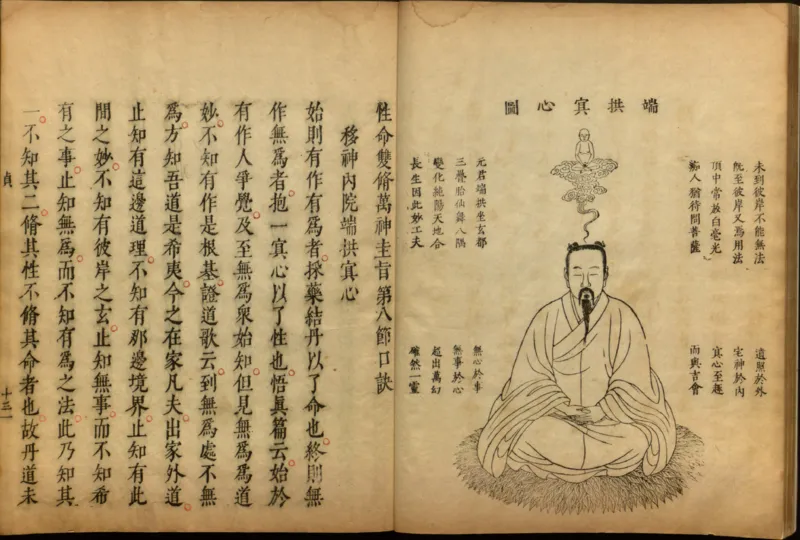 端拱冥心圖
未到彼岸不能無法
旣至彼岸又焉用法
頂中常放白毫光
癡人猶待問菩薩
遺照於外
宅神於內
冥心至趣
而與吉會
元君端拱坐玄都
三疊胎仙舞八隅
變化純陽天地合
長生因此妙工夫
無心於事
無事於心
超出萬幻
確然一靈
性命雙脩萬神圭旨第八節口訣
移神內院端拱冥心
始則有作有爲者採藥結丹以了命也終則無
作無爲者抱一冥心以了性也悟眞篇云始於
有作人爭覺及至無爲衆始知但見無爲爲道
妙不知有作是根基證道歌云到無爲處不無
爲方知吾道是希夷今之在家凡夫出家外道
止知有這邊道理不知有那邊境界止知有此
間之妙不知有彼岸之玄止知無事而不知希
有之事止知無爲而不知有爲之法此乃知其
一不知其二脩其性不脩其命者也故丹道未
貞